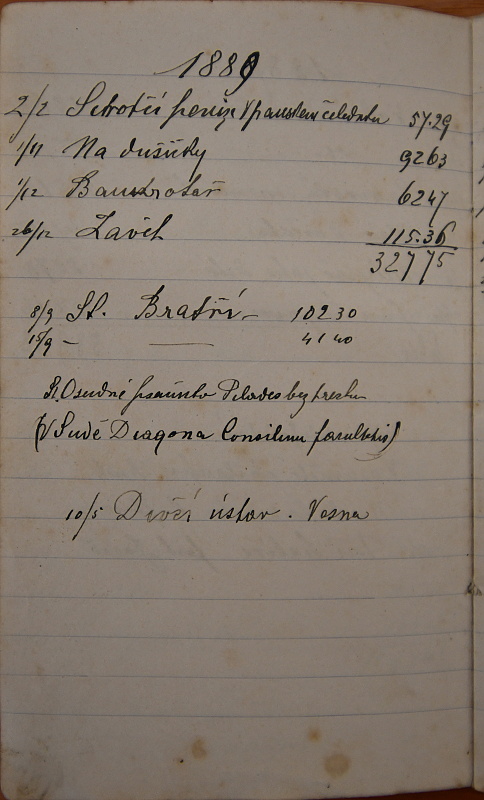 1889
2/2 Sirotčí peníze V panském čeledníku 57.29
1/11 Na dušičky 9263
1/12 Bankrotář 6247
26/12 Závěť 115.36
32775
8/9 St. Bratři - 102 30
15/9 - — 41 40
Osudné psaníčko Pilades bez
(V Sudě Diagona Consilium facultatis)
10/5 Dívčí ústav. Vesna